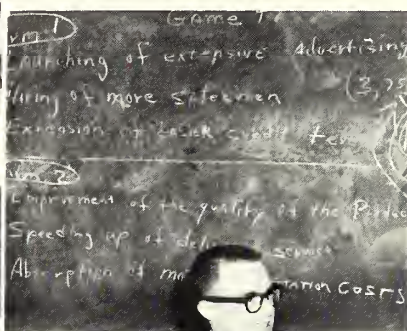 Game 1
Firm 1
Launching of extensive Advertising
Hiring of more salesmen
Extension of
Firm 2
Improvment of the quality of the Produc
Speeding up of deli service
Absorption of mo tation Costs